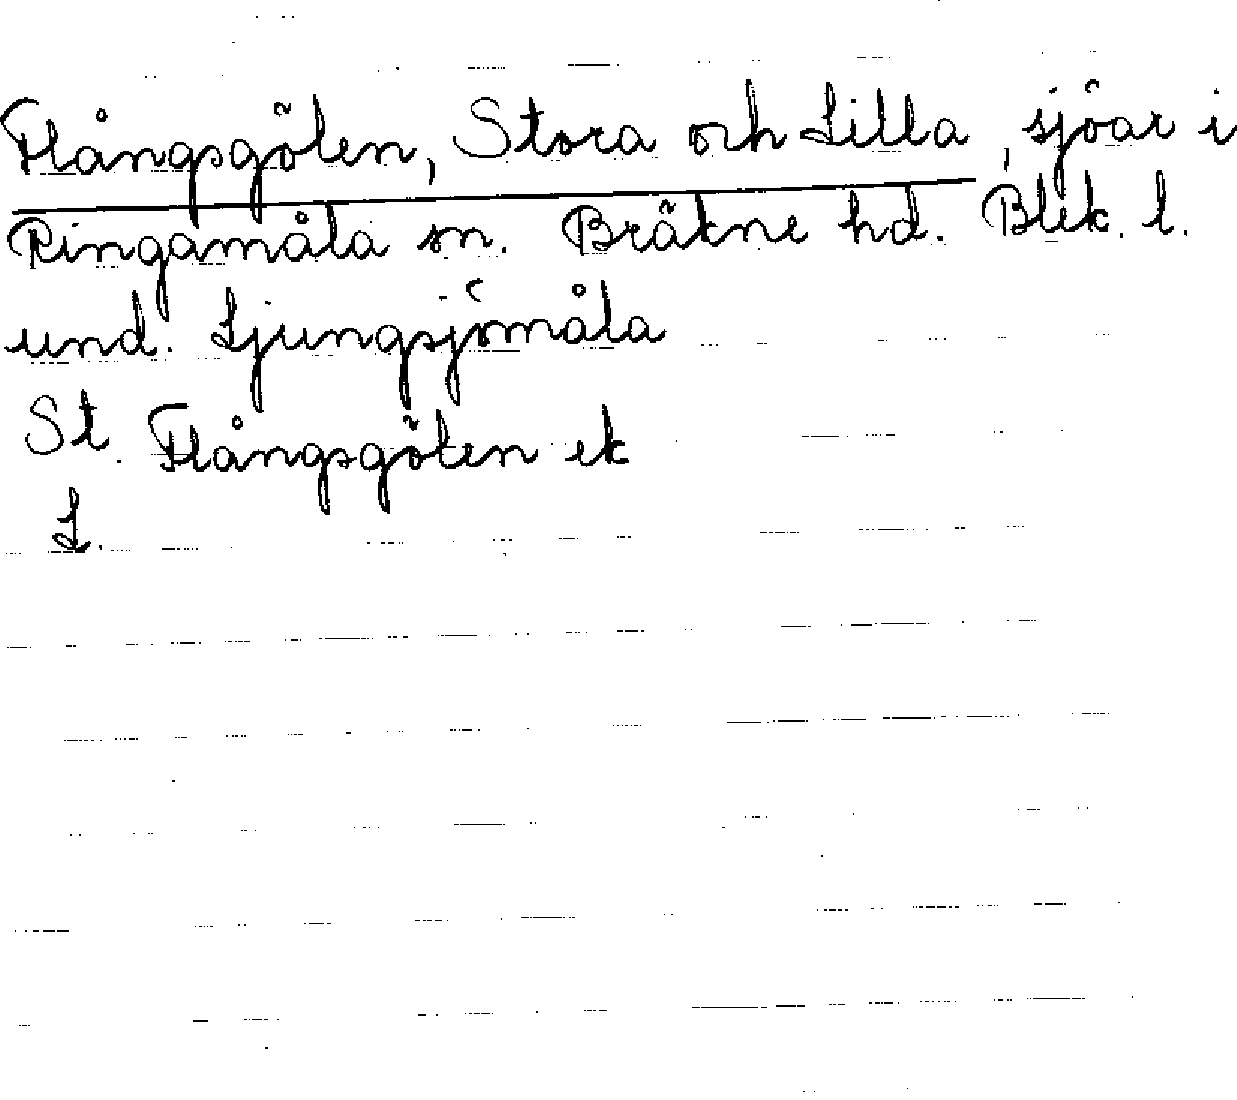 Flångsgölen, Stora och Lilla, sjöar i
Ringamåla sn. Bräkne hd. Blek. l.
und. Ljungsjömåla
St. Flångsgölen ek
L.